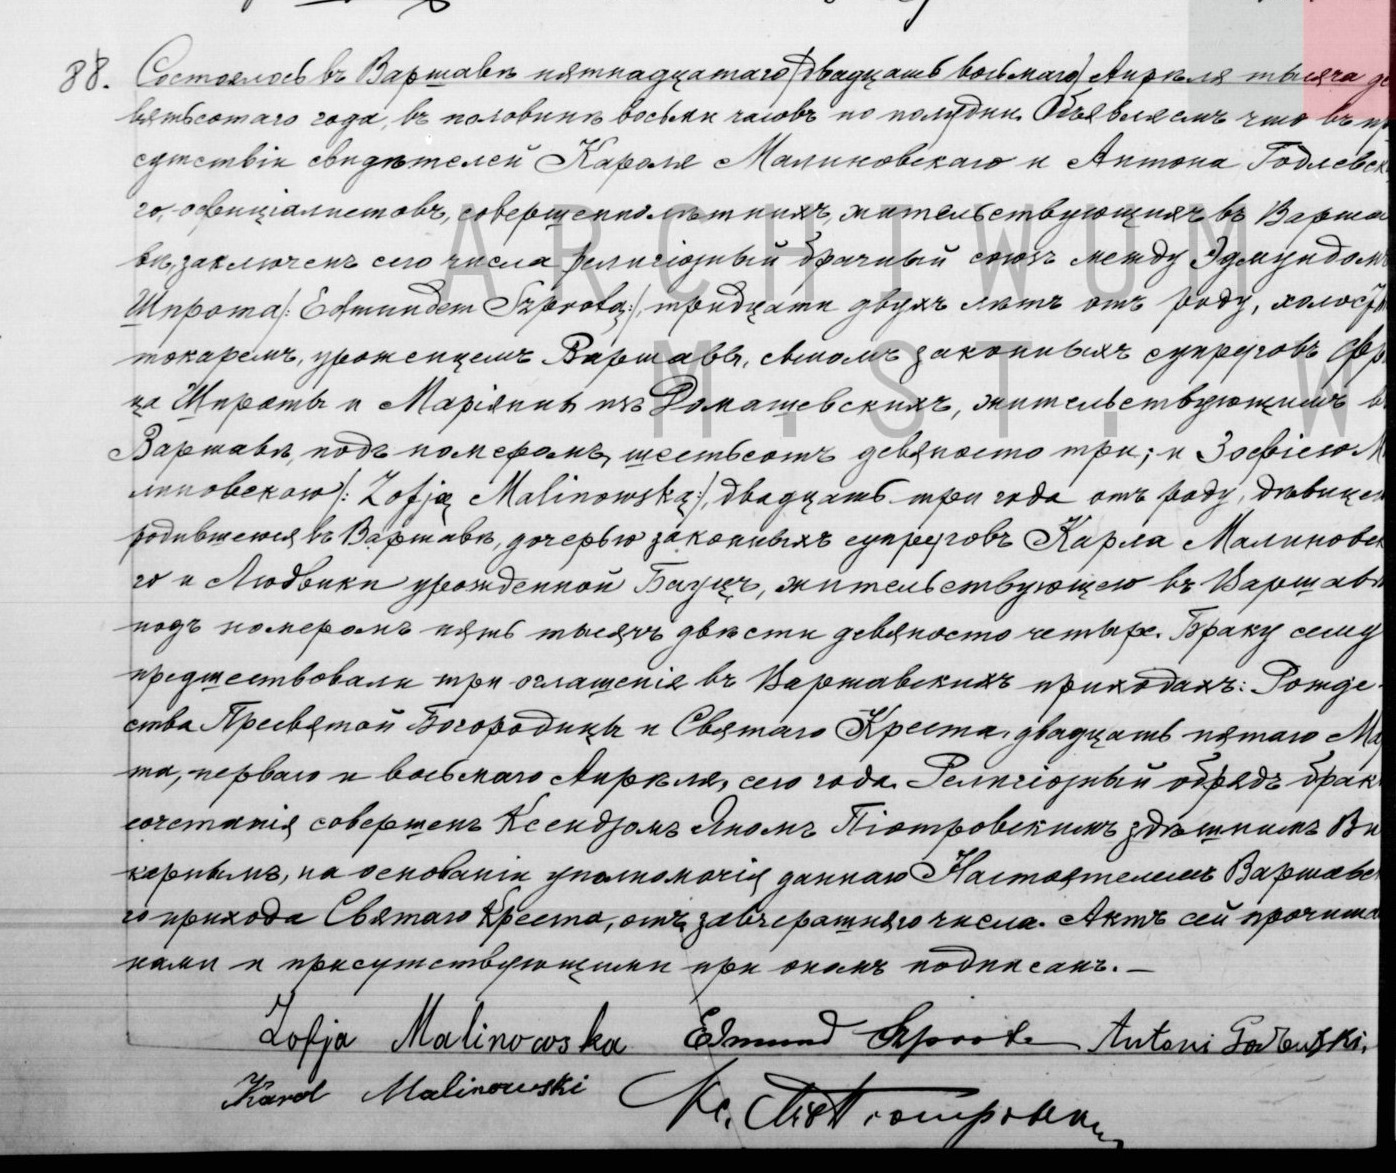 88. Состоялось въ Варшавѣ пятнадцатаго /двадцать восьмаго/ Апрѣля тысяча де
вятьсотаго года, въ половинѣ восьми часовъ по полудни. Объявляемъ что въ пр
сутствіи свидѣтелей Кароля Малиновскаго и Антона Годлевск
го, оффиціалистовъ, совершеннолѣтнихъ, жительствующихъ въ Варша
вѣ, заключенъ сего числа религіозный брачный союзъ между Эдмундомъ
Шпрота /: Edmundem Szprotą :/, тридцати двухъ лѣтъ отъ роду, холост
токаремъ, уроженцемъ Варшавы, сыномъ законныхъ супруговъ Фр
ца Шпроты и Маріянны изъ Домашевскихъ, жительствующимъ в
Варшавѣ, подъ номеромъ шестьсотъ девяносто три; и Зофіею М
линовскою /: Zofją Malinowską :/, двадцать три года отъ роду, дѣвице
родившеюся въ Варшавѣ, дочерью законныхъ супруговъ Карла Малиновск
го и Людвики урожденной Бауцъ, жительствующею въ Варшавѣ
подъ номеромъ пять тысячъ двѣсти девяносто четыре. Браку сему
предшествовали три оглашенія въ Варшавскихъ приходахъ: Рожде-
ства Пресвятой Богородицы и Святаго Креста, двадцать пятаго Ма
та, перваго и восьмаго Апрѣля, сего года. Религіозный обрядъ брак
сочетанія совершенъ Ксендзомъ Яномъ Піотровскимъ здѣшнимъ Ви
карнымъ, на основаніи уполномочія даннаго Настоятелемъ Варшавск
го прихода Святаго Креста, отъ завчерашняго числа. Актъ сей прочита
нами и присутствующими при ономъ подписанъ. —
Zofja Malinowska Edmund Szprota Antoni Godlewski.
Karol Malinowski Кс. Піотровскі
ARCHIWUM
M. ST. W